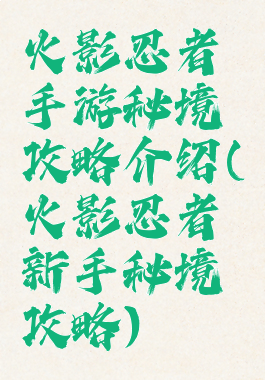 火影忍者
手游秘境
攻略介绍(
火影忍者
新手秘境
攻略)